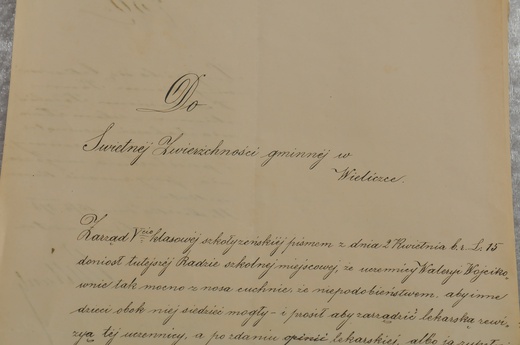 Do
Swietnéj Zwierzchności gminnéj w
Wieliczce.
Zarząd Vcio klasowéj szkoły żeńskiéj pismem z dnia 2 Kwietnia b.r. L. 15
doniosł tutejszéj Radzie szkolnéj miejscowéj, że uczennicy Waleryi Wojciko,
wnie tak mocno z nosa cuchnie, że niepodobieństwem, aby inne
dzieci obok niéj siedzieć mogły – i prosił aby zarządzić lekarską rewi,
zyą téj uczennicy, a po zdaniu opinie lekarskiéj, albo ją